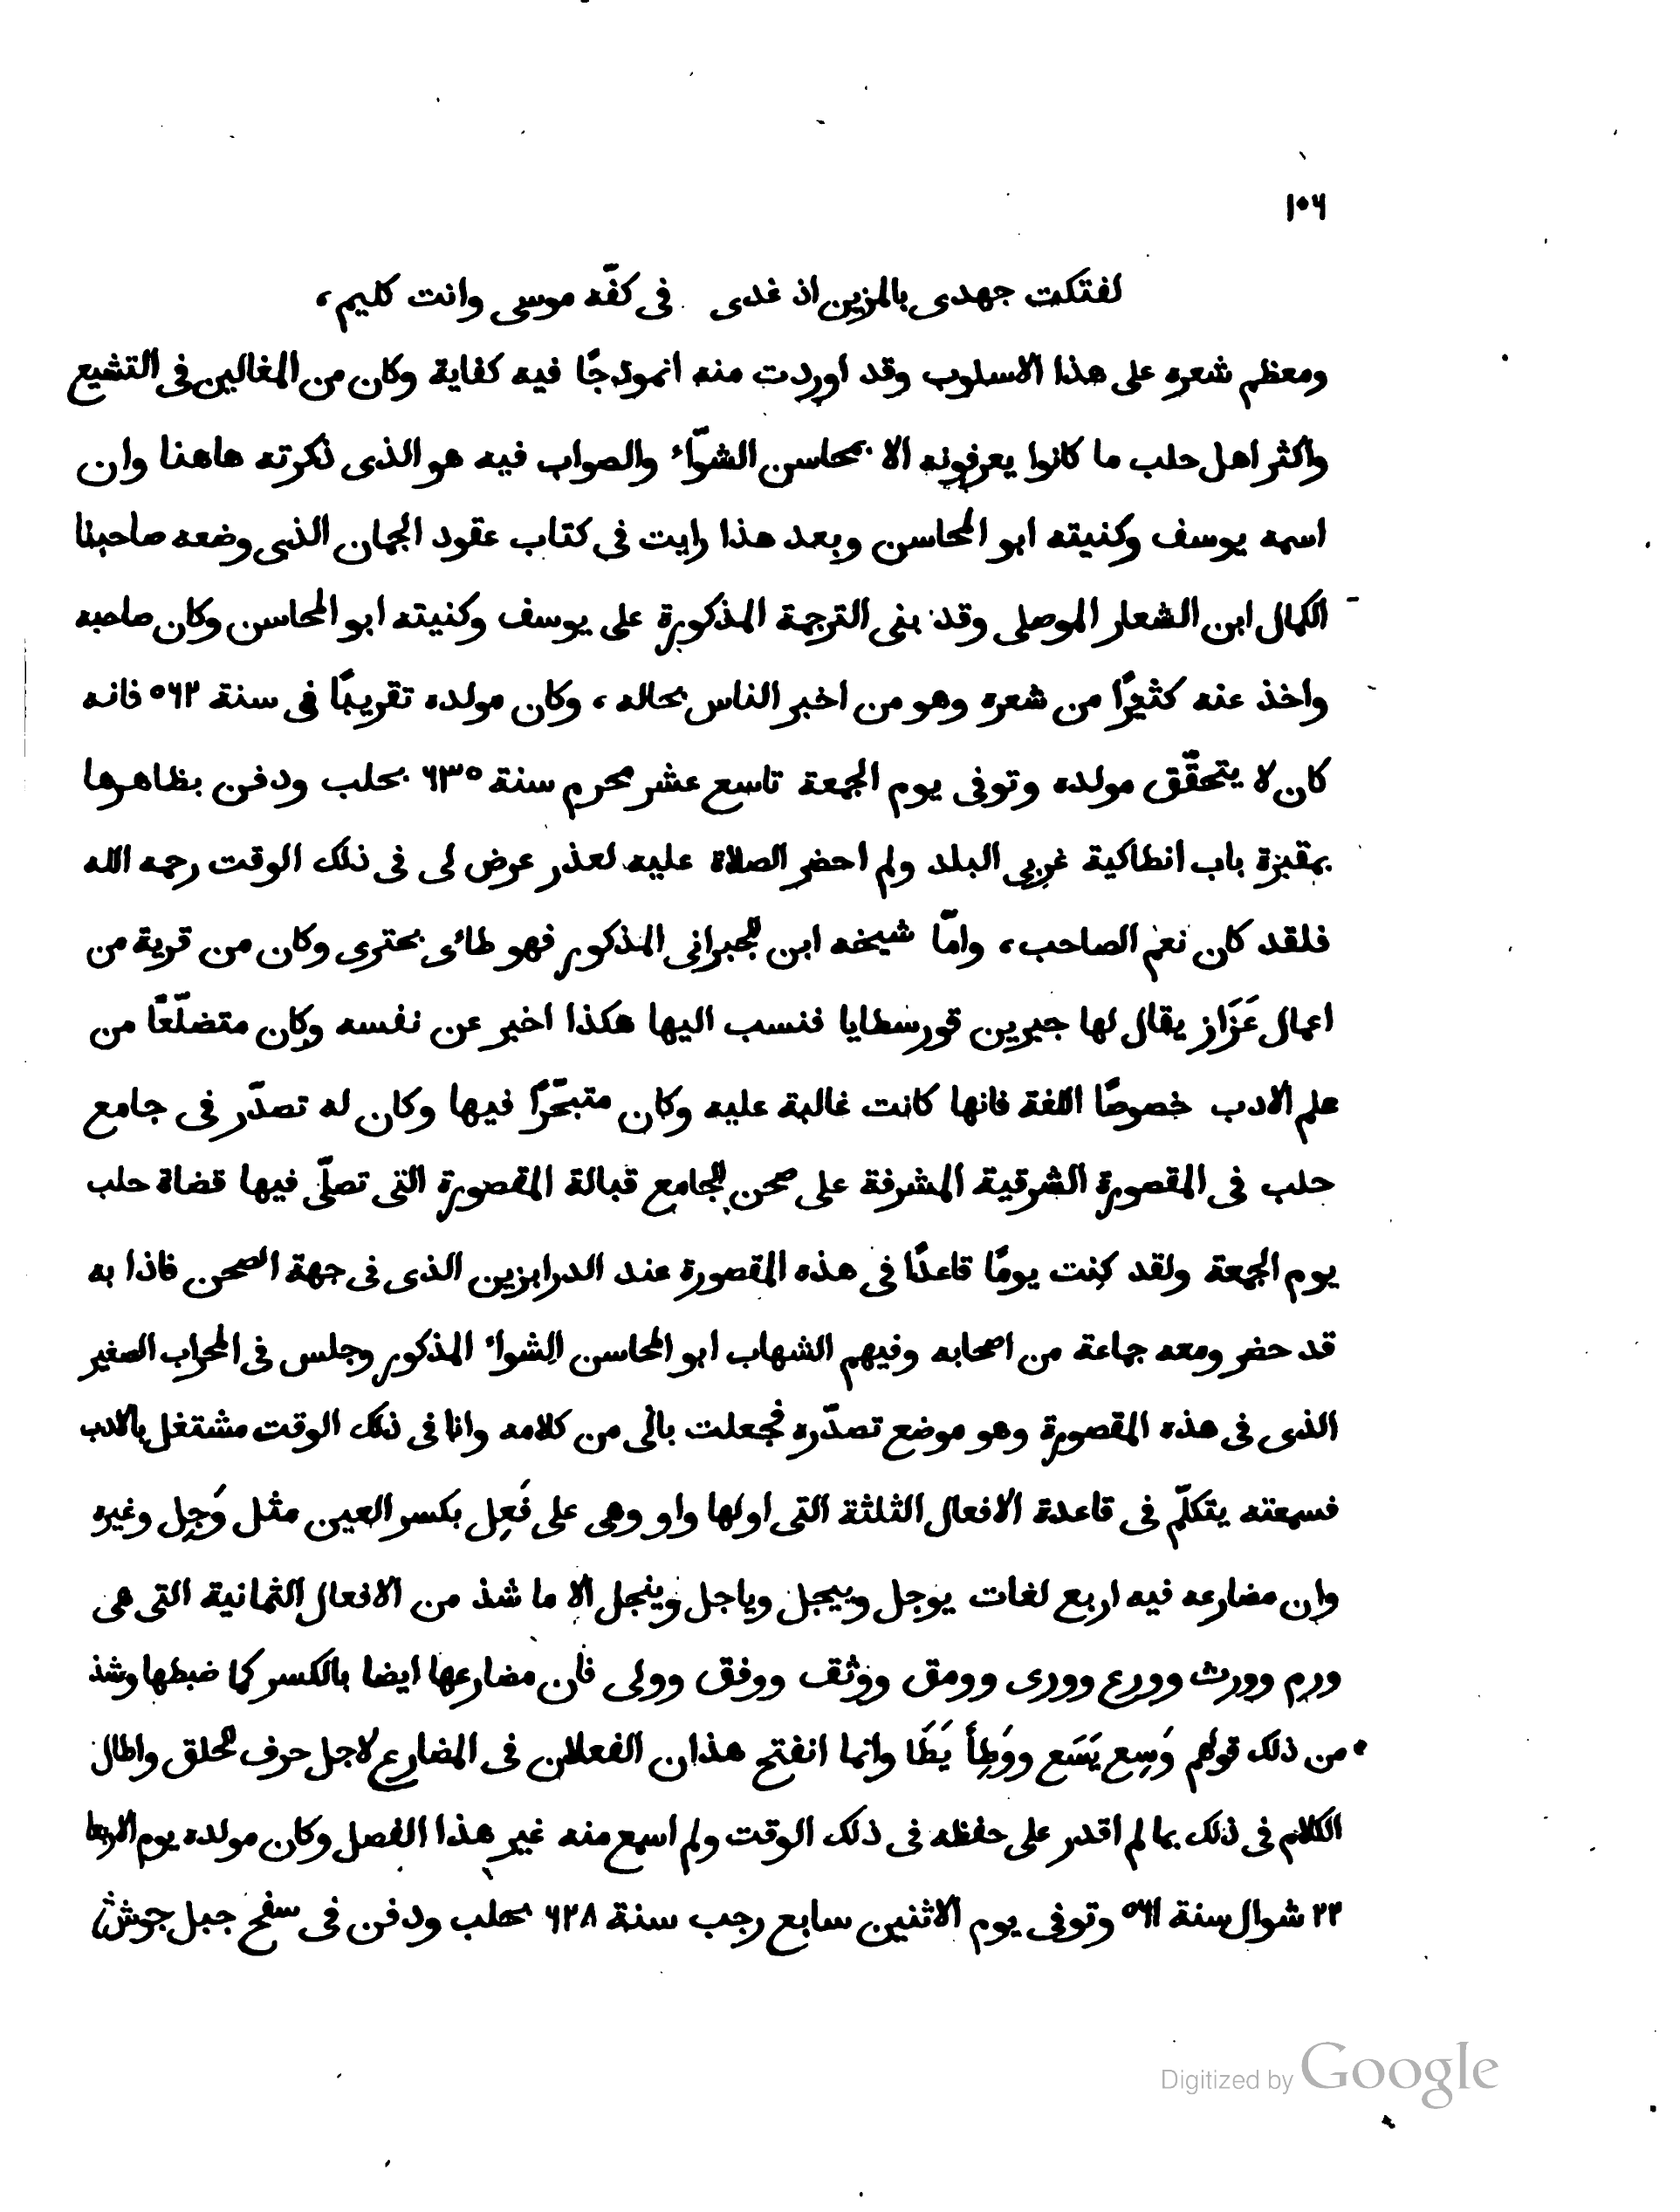 ١٠٦
لفتكت جهدى بالمزين اذ غدى فى كفّه موسى وانت كليم،
ومعظم شعره على هذا الاسلوب وقد اوردت منه انموذجًا فيه كفاية وكان من المغالين فى التشيع
واكثر اهل حلب ما كانوا يعرفونه الا بمحاسن الشوّاء والصواب فيه هو الذى ذكرته هاهنا وان
اسمه يوسف وكنيته ابو المحاسن وبعد هذا رايت فى كتاب عقود الجمان الذى وضعه صاحبنا
الكمال ابن الشعار الموصلى وقد بنى الترجمة المذكورة على يوسف وكنيته ابو المحاسن وكان صاحبه
واخذ عنه كثيرًا من شعره وهو من اخبر الناس بحاله، وكان مولده تقريبًا فى سنة ٥٦٢ فانه
كان لا يتحقّق مولده وتوفى يوم الجمعة تاسع عشر محرم سنة ٦٣٥ بحلب ودفن بظاهرها
بمقبرة باب انطاكية غربى البلد ولم احضر الصلاة عليه لعذر عرض لى فى ذلك الوقت رحمه الله
فلقد كان نعم الصاحب، وامّا شيخه ابن الجبرانى المذكور فهو طائى بحترى وكان من قرية من
اعمال عَزَاز يقال لها جبرين قورسطايا فنسب اليها هكذا اخبر عن نفسه وكان متضلّعًا من
علم الادب خصوصًا اللغة فانها كانت غالبة عليه وكان متبحّرًا فيها وكان له تصدّر فى جامع
حلب فى المقصورة الشرقية المشرفة على صحن الجامع قبالة المقصورة التى تصلّى فيها قضاة حلب
يوم الجمعة ولقد كنت يومًا قاعدًا فى هذه المقصورة عند الدرابزين الذى فى جهة الصحن فاذا به
قد حضر ومعه جماعة من اصحابه وفيهم الشهاب ابو المحاسن الشواء المذكور وجلس فى المحراب الصغير
الذى فى هذه المقصورة وهو موضع تصدّره فجعلت بالى من كلامه وانا فى ذلك الوقت مشتغل بالادب
فسمعته يتكلّم فى قاعدة الافعال الثلثة التى اولها واو وهى على فَعِل بكسر العين مثل وَجِل وغيره
وان مضارعه فيه اربع لغات يوجل وييجل وياجل وينجل الا ما شذ من الافعال الثمانية التى هى
ورم وورث وورع وورى وومق ووثق ووفق وولى فان مضارعها ايضا بالكسر كما ضبطها وشذ
من ذلك قولهم وَسِع يَسَع ووَطِأَ يَطَا وانما انفتح هذان الفعلان فى المضارع لاجل حرف الحلق واطال
الكلام فى ذلك بما لم اقدر على حفظه فى ذلك الوقت ولم اسمع منه غير هذا الفصل وكان مولده يوم الاربعا
٢٢ شوال سنة ٥٦١ وتوفى يوم الاثنين سابع رجب سنة ٦٢٨ بحلب ودفن فى سفح جبل جوشن
Digitized by Google